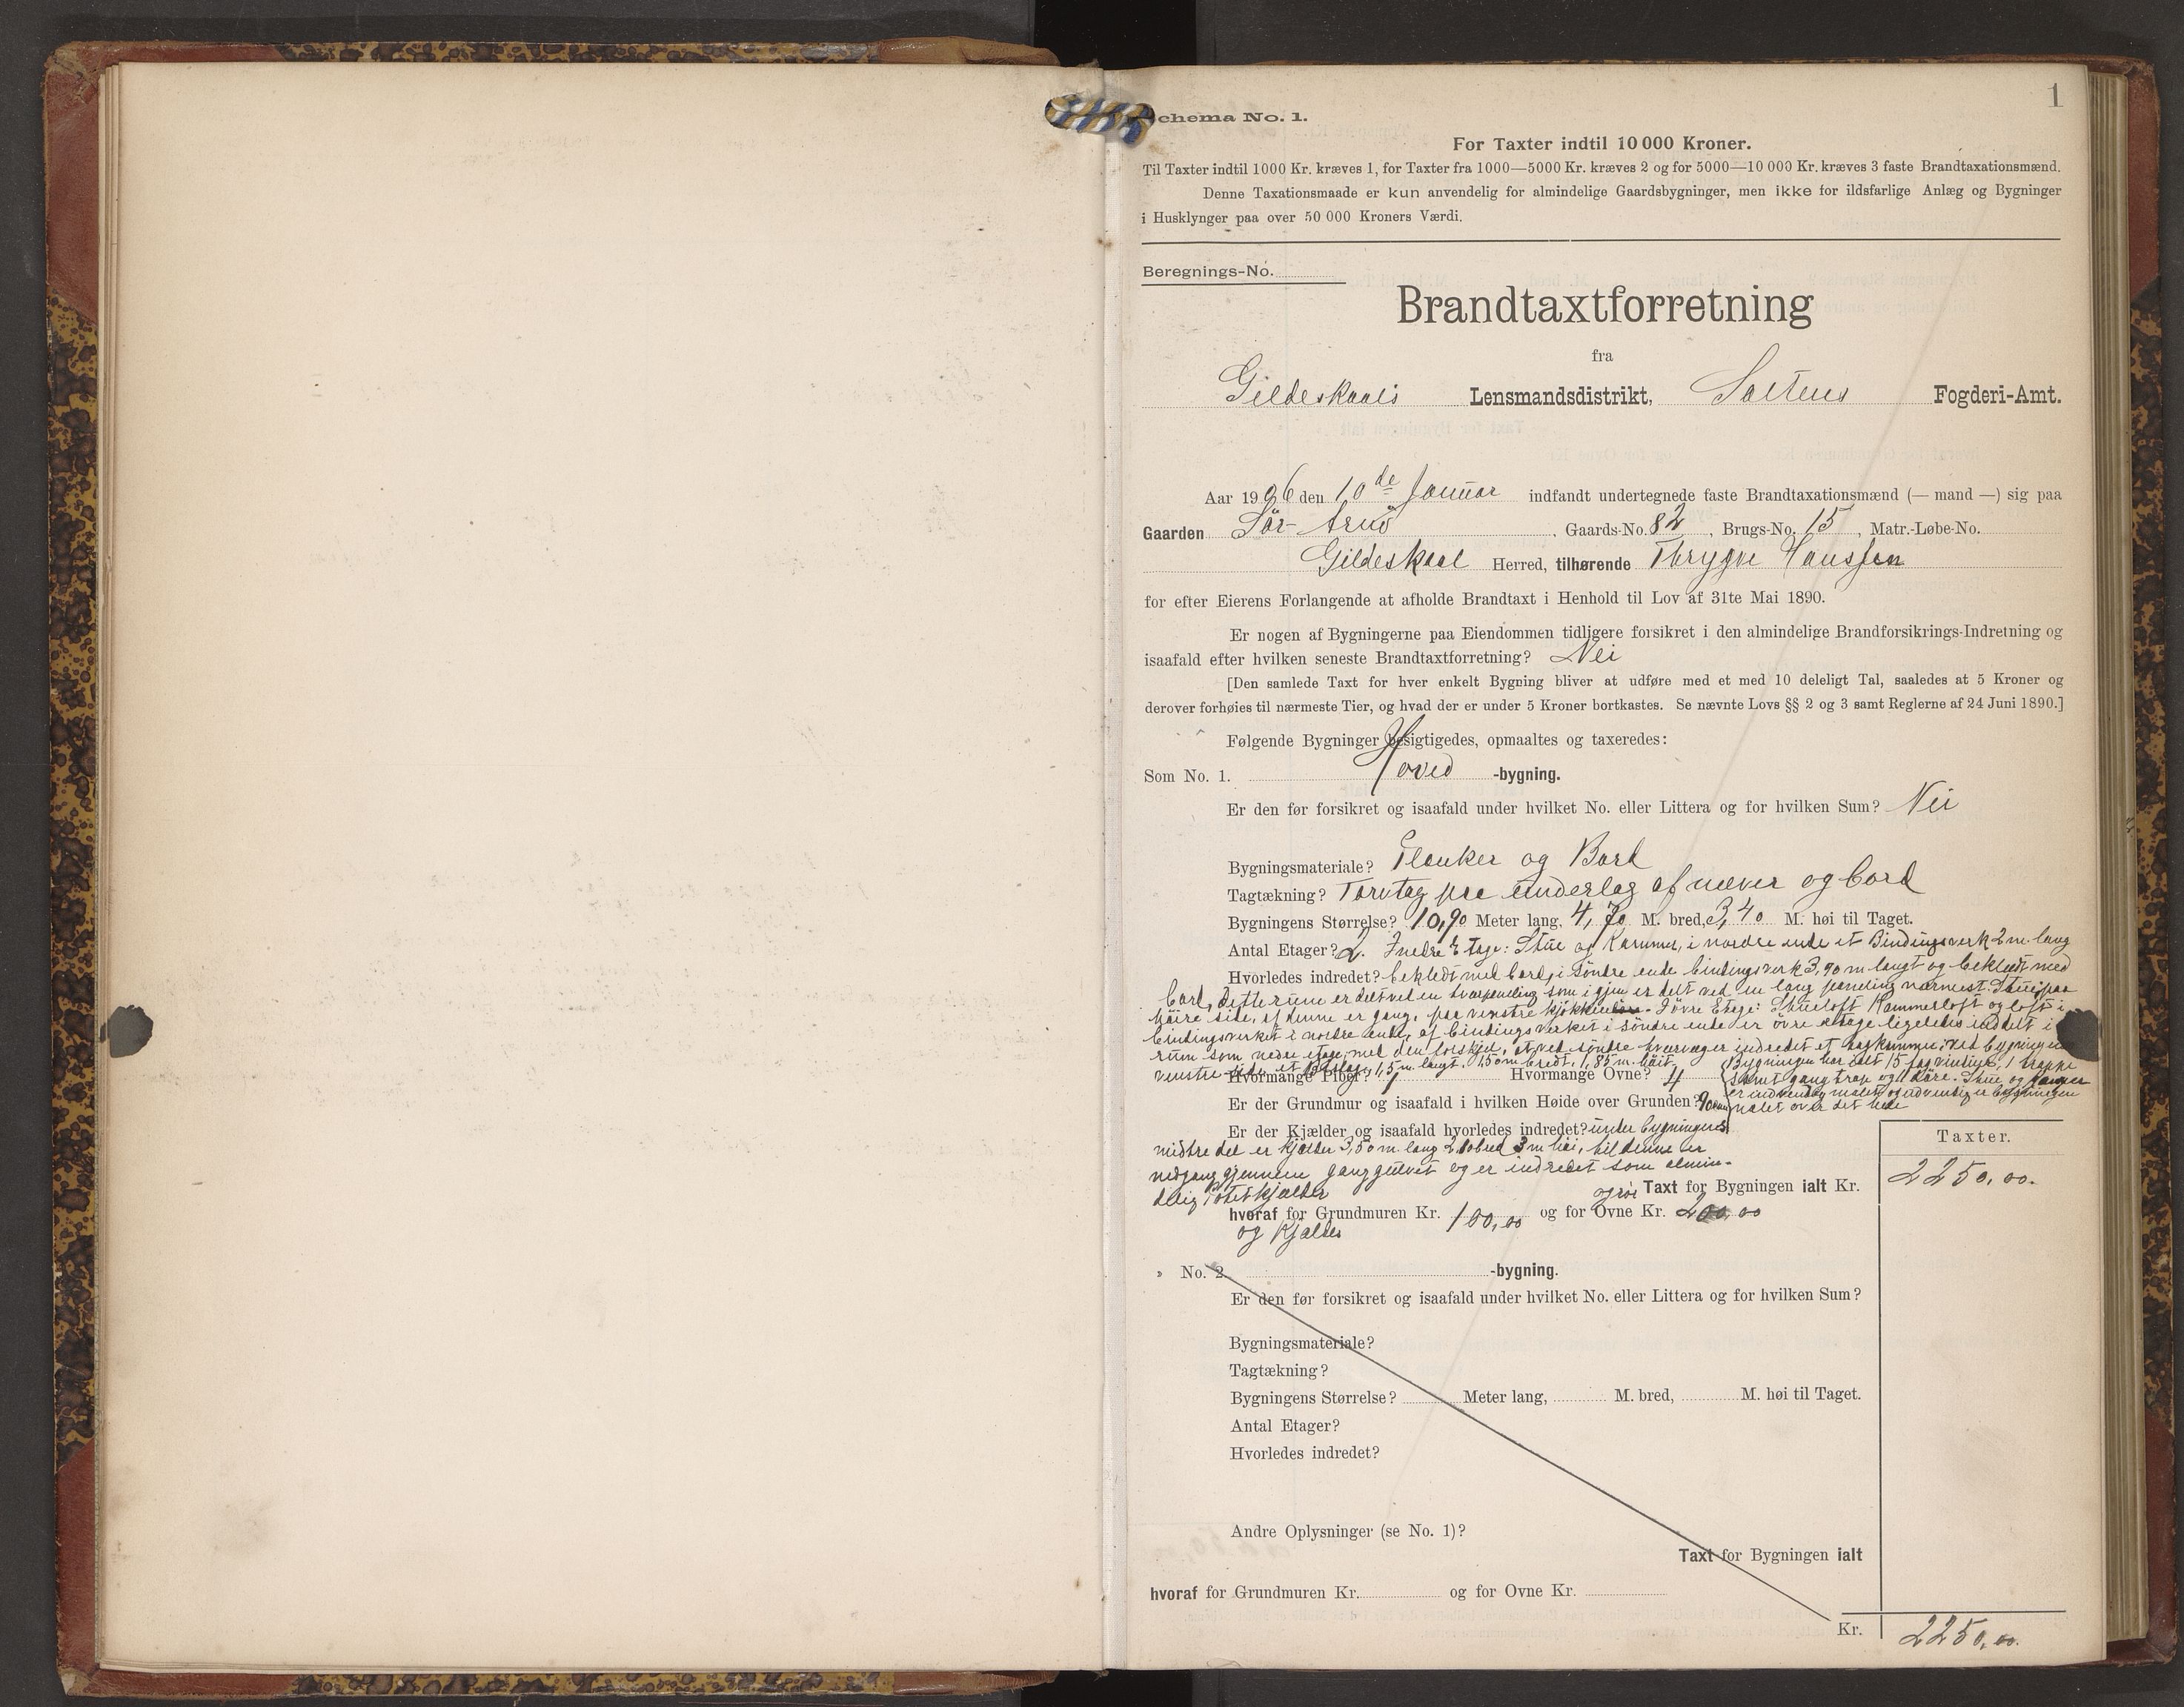 1
chema No. 1.
For Taxter indtil 10 000 Kroner.
Til Taxter indtil 1000 Kr. kræves 1, for Taxter fra 1000—5000 Kr. kræves 2 og for 5000—10 000 Kr. kræves 3 faste Brandtaxationsmænd.
Denne Taxationsmaade er kun anvendelig for almindelige Gaardsbygninger, men ikke for ildsfarlige Anlæg og Bygninger
i Husklynger paa over 50 000 Kroners Værdi.
Beregnings-No.
Brandtaxtforretning
fra
Gildeskaals Lensmandsdistrikt, Saltens Fogderi-Amt.
Aar 1906 den 10de Januar indfandt undertegnede faste Brandtaxationsmænd (— mand —) sig paa
Gaarden Sör-Arnö, Gaards-No. 82, Brugs-No. 15, Matr.-Løbe-No.
Gildeskaal Herred, tilhørende Thrygve Hanssen
for efter Eierens Forlangende at afholde Brandtaxt i Henhold til Lov af 31te Mai 1890.
Er nogen af Bygningerne paa Eiendommen tidligere forsikret i den almindelige Brandforsikrings-Indretning og
isaafald efter hvilken seneste Brandtaxtforretning? Nei
[Den samlede Taxt for hver enkelt Bygning bliver at udføre med et med 10 deleligt Tal, saaledes at 5 Kroner og
derover forhøies til nærmeste Tier, og hvad der er under 5 Kroner bortkastes. Se nævnte Lovs §§ 2 og 3 samt Reglerne af 24 Juni 1890.]
Følgende Bygninger besigtigedes, opmaaltes og taxeredes:
Som No. 1. Hoved -bygning.
Er den før forsikret og isaafald under hvilket No. eller Littera og for hvilken Sum? Nei
Bygningsmateriale? Planker og Bord
Tagtækning? Torvtag paa underlag af næver og bord
Bygningens Størrelse? 10,90 Meter lang, 4,70 M. bred, 3,40 M. høi til Taget.
Antal Etager? 2. Nedre Etage: Stue og Kammer, i nordre ende et Bindingsverk 2 m. lang
Hvorledes indredet? beklædt med bord, i söndre ende bindingsverk 3,90 m langt og beklædt med
bord, Dette rum er delt ved en tværpaneling som igjen er delt ved en lang paneling nærmest Stue, paa
höire side, af denne er gang, paa venstre kjökken. I övre Etage: Stueloft Kammerloft og loft i
bindingsverket i nordre ende, af bindingsverket i söndre ende er övre etage ligeledes inddelt i
rum som nedre etage, med den forskjel, at ved söndre indredet et ved bygningens
venstre side et 1,5 m. langt, 1,50 m bredt, 1,85 m. höit.
Hvormange Piber? 1 Hvormange Ovne? 4
Bygningen har ialt 15 fag vinduer, 1 trappe
samt gangtrap og 11 döre. Stue og Kammer
er indvendig malet og udvendig er bygningen
malet over det hele
Er der Grundmur og isaafald i hvilken Høide over Grunden? 90 cm
Er der Kjælder og isaafald hvorledes indredet? under bygningens
midtre del er kjælder 3,50 m. lang 2,10 bred 3 m höi, til denne er
nedgang gjennem ganggulvet og er indredet som almin-
delig Potetkjælder
Taxter.
og rör Taxt for Bygningen ialt Kr. 2250,00.
hvoraf for Grundmuren Kr. 100,00 og for Ovne Kr. 200,00
og Kjælder
» No. 2 -bygning.
Er den før forsikret og isaafald under hvilket No. eller Littera og for hvilken Sum?
Bygningsmateriale?
Tagtækning?
Bygningens Størrelse? Meter lang, M. bred, M. høi til Taget.
Antal Etager?
Hvorledes indredet?
Andre Oplysninger (se No. 1)?
Taxt for Bygningen ialt
hvoraf for Grundmuren Kr. og for Ovne Kr.
Kr. 2250,00.